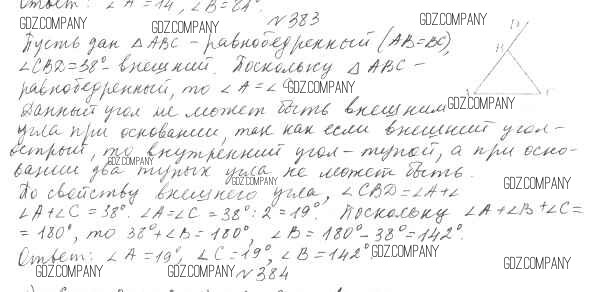 Ответ: ∠A = 14, ∠B = 84°.
N 383
Пусть дан △ABC – равнобедренный (AB=BC),
∠CBD=38° – внешний. Поскольку △ABC –
равнобедренный, то ∠A=∠C
Данный угол не может быть внешним
угла при основании, так как если внешний угол –
острый, то внутренний угол – тупой, а при осно-
вании два тупых угла не может быть.
По свойству внешнего угла, ∠CBD=∠A+∠
∠A+∠C=38°. ∠A=∠C=38°:2=19°. Поскольку ∠A+∠B+∠C=
=180°, то 38°+∠B=180°, ∠B=180°-38°=142°.
Ответ: ∠A=19°, ∠C=19°, ∠B=142°
N 384
D
B
A
C
GDZ.COMPANY
GDZ.COMPANY
GDZ.COMPANY
GDZ.COMPANY
GDZ.COMPANY
GDZ.COMPANY
GDZ.COMPANY
GDZ.COMPANY
GDZ.COMPANY
GDZ.COMPANY
GDZ.COMPANY
GDZ.COMPANY